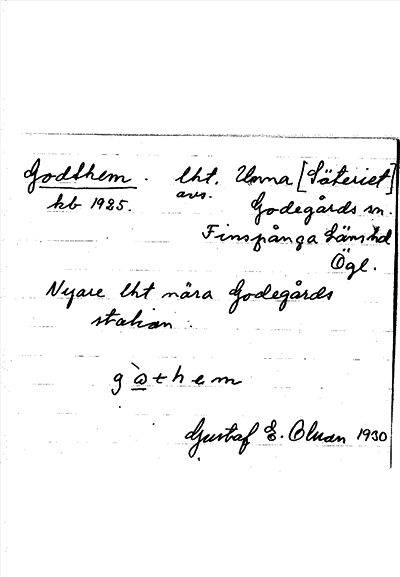 Godthem. lht. Unna [Säteriet]
kb 1925. avs. Godegårds sn.
Finspånga läns hd
Ögl.
Nyare lht nära Godegårds
station.
Gustaf E. Olsson 1930